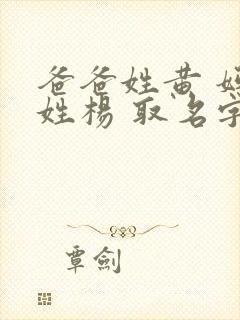 爸爸姓黄
姓楊 取名
覃劍